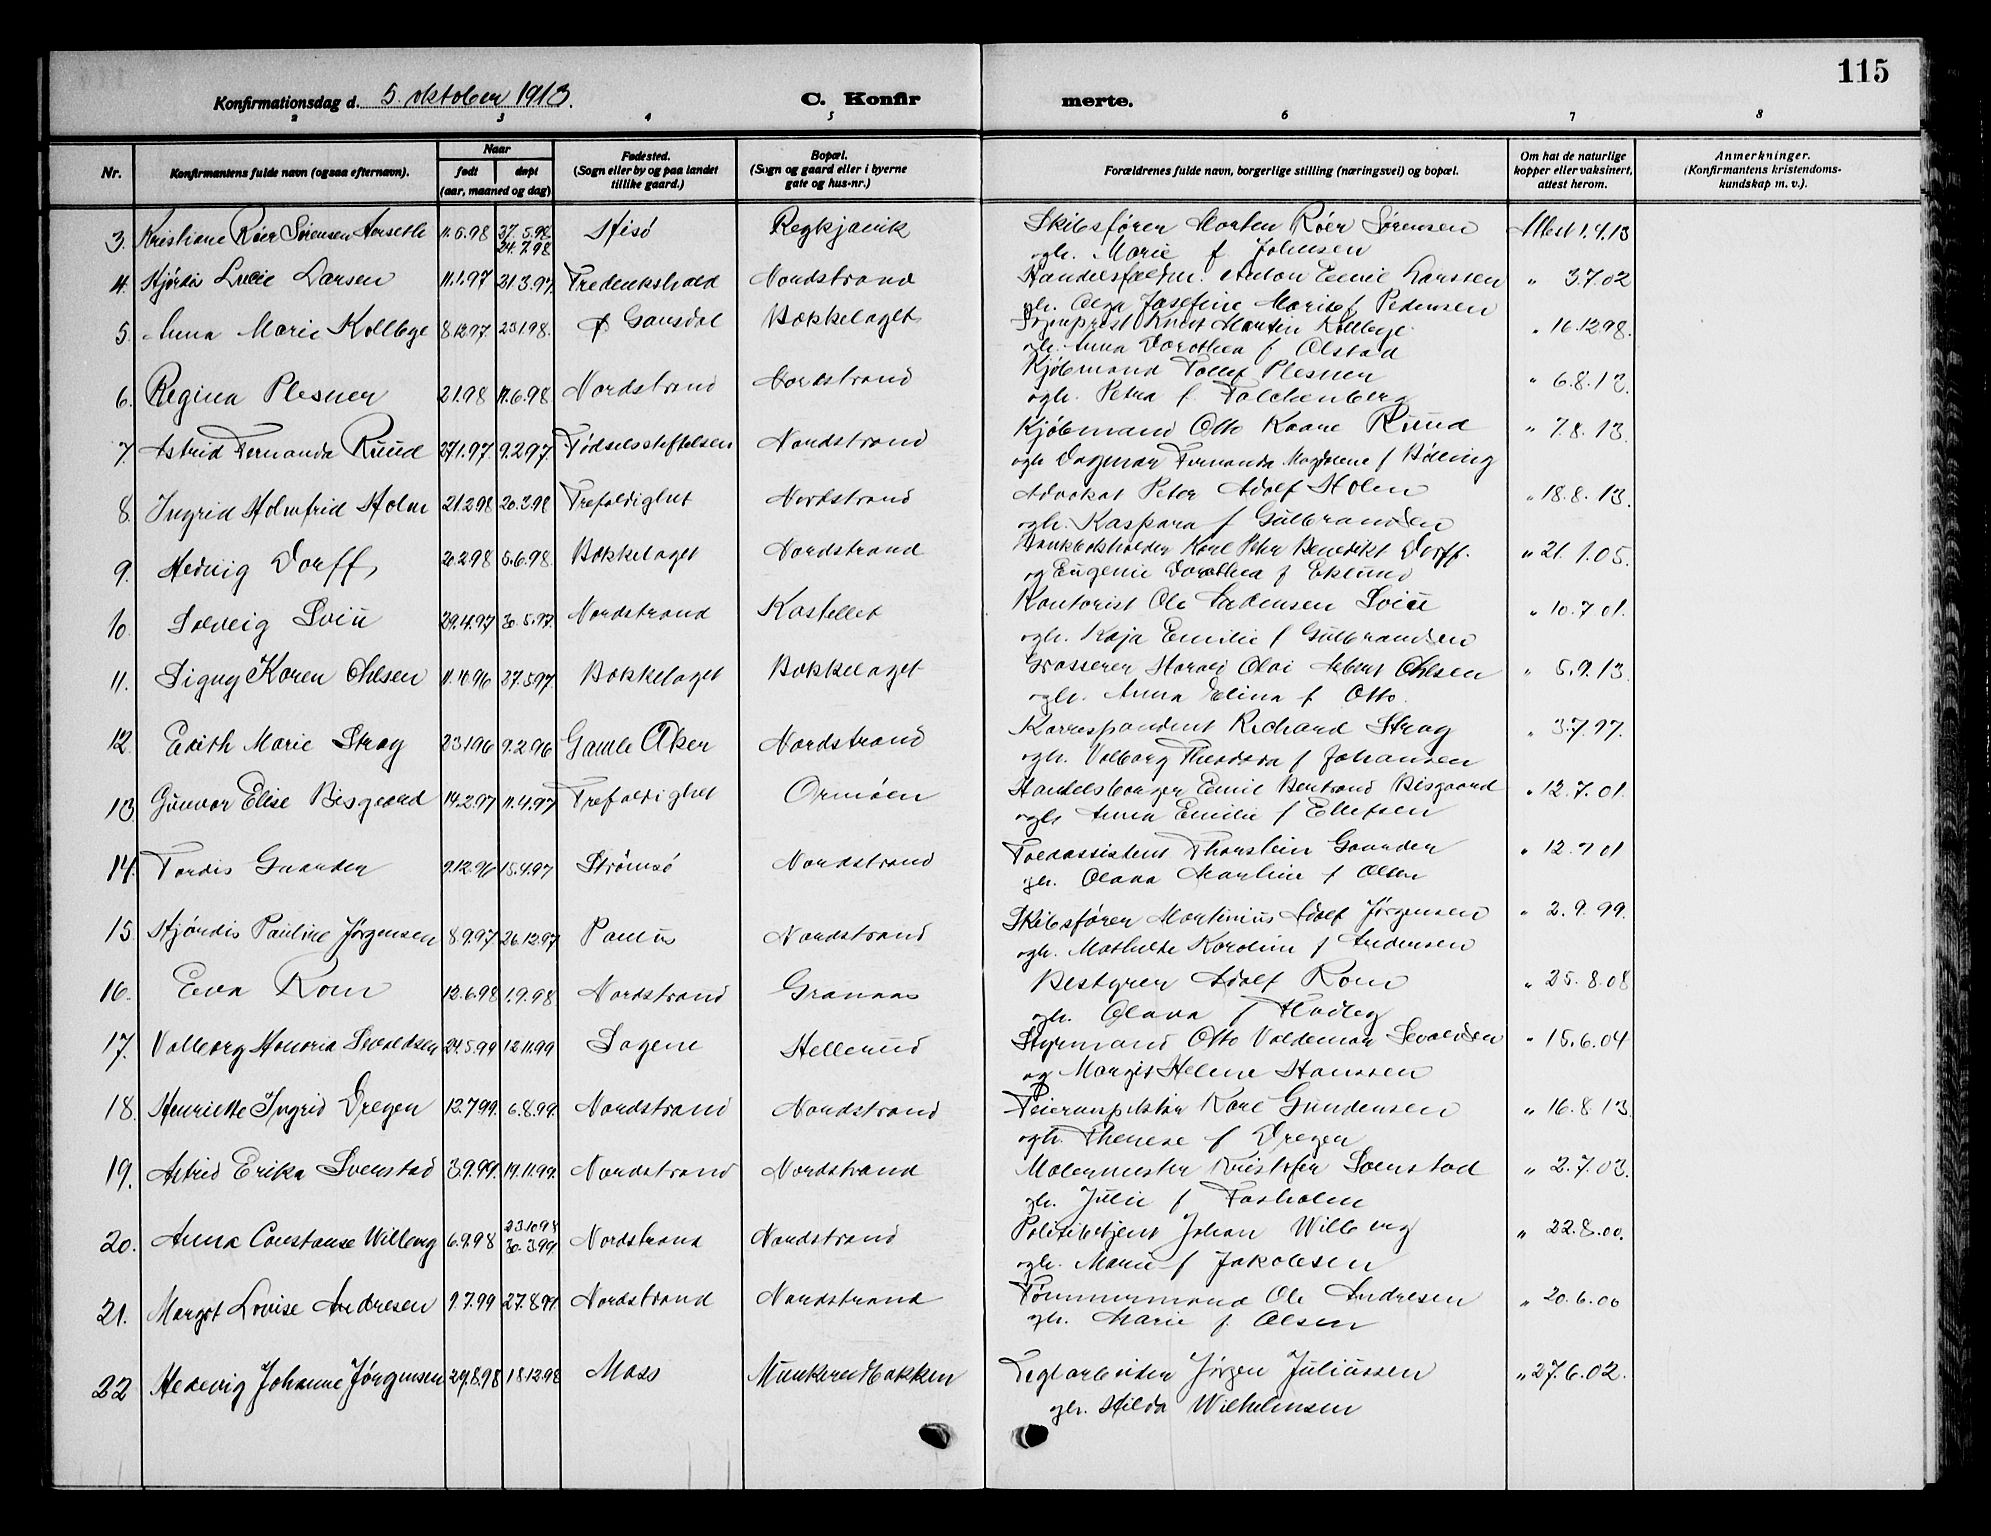 115
Konfirmationsdag d. 5. oktober 1913. C. Konfirmerte.
2 3 4 5 6 7 8
Nr. Konfirmantens fulde navn (ogsaa efternavn). Naar født døpt (aar, maaned og dag) Fødested. (Sogn eller by og paa landet tillike gaard.) Bopæl. (Sogn og gaard eller i byerne gate og hus-nr.) Forældrenes fulde navn, borgerlige stilling (næringsvei) og bopæl. Om hat de naturlige kopper eller vaksinert, attest herom. Anmerkninger. (Konfirmantens kristendomskundskap m. v.).
3. Kristiane Röer Sörensen 11.6.98 27.5.98 24.7.98 Hisö Reykjavik Skibsförer Morten Röer Sörensen Attest 1.4.13
ogh. Marie f Johnsen
4. Hjördis Lucie Larsen 11.1.97 21.3.97 Fredrikshald Nordstrand Anton Emil Larsen " 3.7.02
gh. Olga Josefine Marie f Pedersen
5. Anna Marie Kolbye 8.12.97 23.1.98. Ø Gausdal Bækkelaget Sogneprest Knut Martin Kolbye " 16.12.98.
gh. Anna Dorothea f Olstad
6. Regina Plesner 2.1.98 11.6.98 Nordstrand Nordstrand Kjöbmand Plesner " 6.8.13.
ogh. Petra f. Falchenberg
7. Astrid Fernanda Ruud 27.1.97 9.2.97. Fødselsstiftelsen Nordstrand Kjöbmand Otto Kaare Ruud " 7.8.13.
ogh Dagmar Fernanda Magdalene f
8. Ingrid Holmfrid Holm 21.2.98 20.3.98 Trefoldighet Nordstrand Advokat Peter Adolf Holm " 18.8.13.
ogh. Kaspara f Gulbrandsen
9. Hedvig Dorff, 2.2.98 5.6.98. Bækkelaget Nordstrand Bankbokholder Karl Peter Benedikt Dorff. " 21.1.05.
og Eugenie Dorothea f Eklund
10. Solveig Lviu 29.4.97 30.5.97. Nordstrand Kastellet Kontorist Ole " 10.7.01.
ogh. Kaja Emilie f Gulbrandsen
11. Signy Karen Ohlsen 11.4.96 27.5.97. Bækkelaget Bækkelaget Grosserer Harald Olai Albert Ohlsen " 5.9.13.
ogh. Anna Elina f Otto.
12. Edith Marie Strag 23.1.96 9.2.96 Gamle Aker Nordstrand Korrespondent Richard Strag " 3.7.97.
ogh. Valborg Theodora f Johansen
13 Gunvor Elise Bisgaard 14.2.97 11.4.97 Trefoldighet Ormöen Handelsborger Emil Bertrand Bisgaard " 12.7.01.
ogh Anna Emilie f Ellefsen
14. Tordis Gaarder 9.12.96 15.4.97 Strömsö Nordstrand Toldassistent Thorstein Gaarder " 12.7.01
gh. Olava Martine f Olsen
15. Hjördis Pauline Jörgensen 8.9.97 26.12.97 Paulus Nordstrand Skibsförer Martinius Adolf Jörgensen " 2.9.99.
ogh. Mathilde Karoline f Andersen
16. Eva Rom 12.6.98 1.9.98 Nordstrand Granaas Bestyrer Adolf Rom " 25.8.08
ogh. Olava f
17. Valborg Honoria Sevaldsen 24.5.99 12.11.99 Sagene Hellerud Styrmand Otto Valdemar Sevaldsen " 15.6.04
og Margit Helene Hanssen
18. Henriette Ingrid Dregen 13.7.99. 6.8.99. Nordstrand Nordstrand Feierinspektör Karl Gundersen " 16.8.13.
ogh. Therese f Dregen
19. Astrid Erika Svenstad 3.9.99. 19.11.99. Nordstrand Nordstrand Malermester Kristofer Svenstad " 2.7.03.
gh. Julie f Foxholm
20. Anna Constanse Willberg 6.9.98 23.10.98 30.3.99 Nordstrand Nordstrand Politibetjent Johan Willberg " 22.8.00.
ogh. Marie f Jakobsen
21. Margot Lovise Andresen 9.7.99 27.8.99. Nordstrand Nordstrand Tömmermand Ole Andresen " 20.6.00
gh. Marie f. Olsen
22 Hedevig Johanne Jörgensen 29.8.98 18.12.98 Moss Munkerudbakken Teglarbeider Jörgen Juliussen " 27.6.02.
ogh. Hilda Wilhelmsen